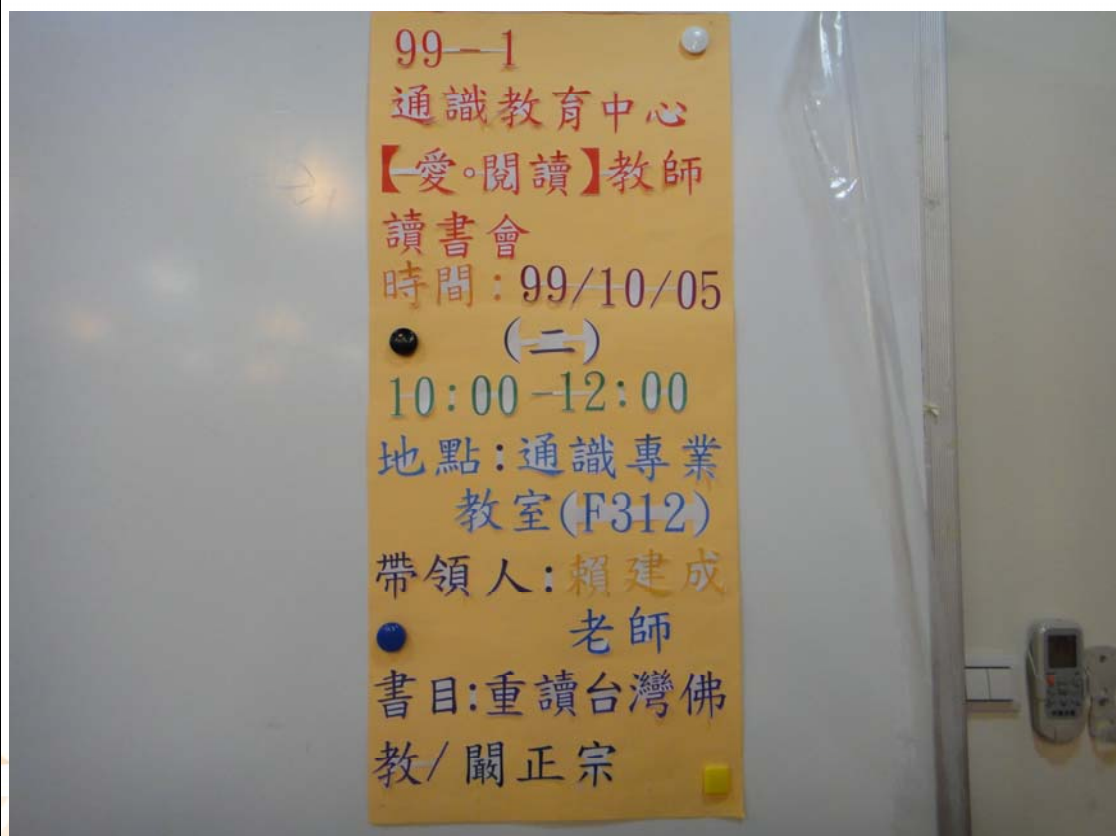 99-1
通識教育中心
【愛。閱讀】教師
讀書會
時間:99/10/05
(二)
10:00-12:00
地點:通識專業
教室(F312)
帶領人:賴建成
老師
書目:重讀台灣佛
教/闞正宗